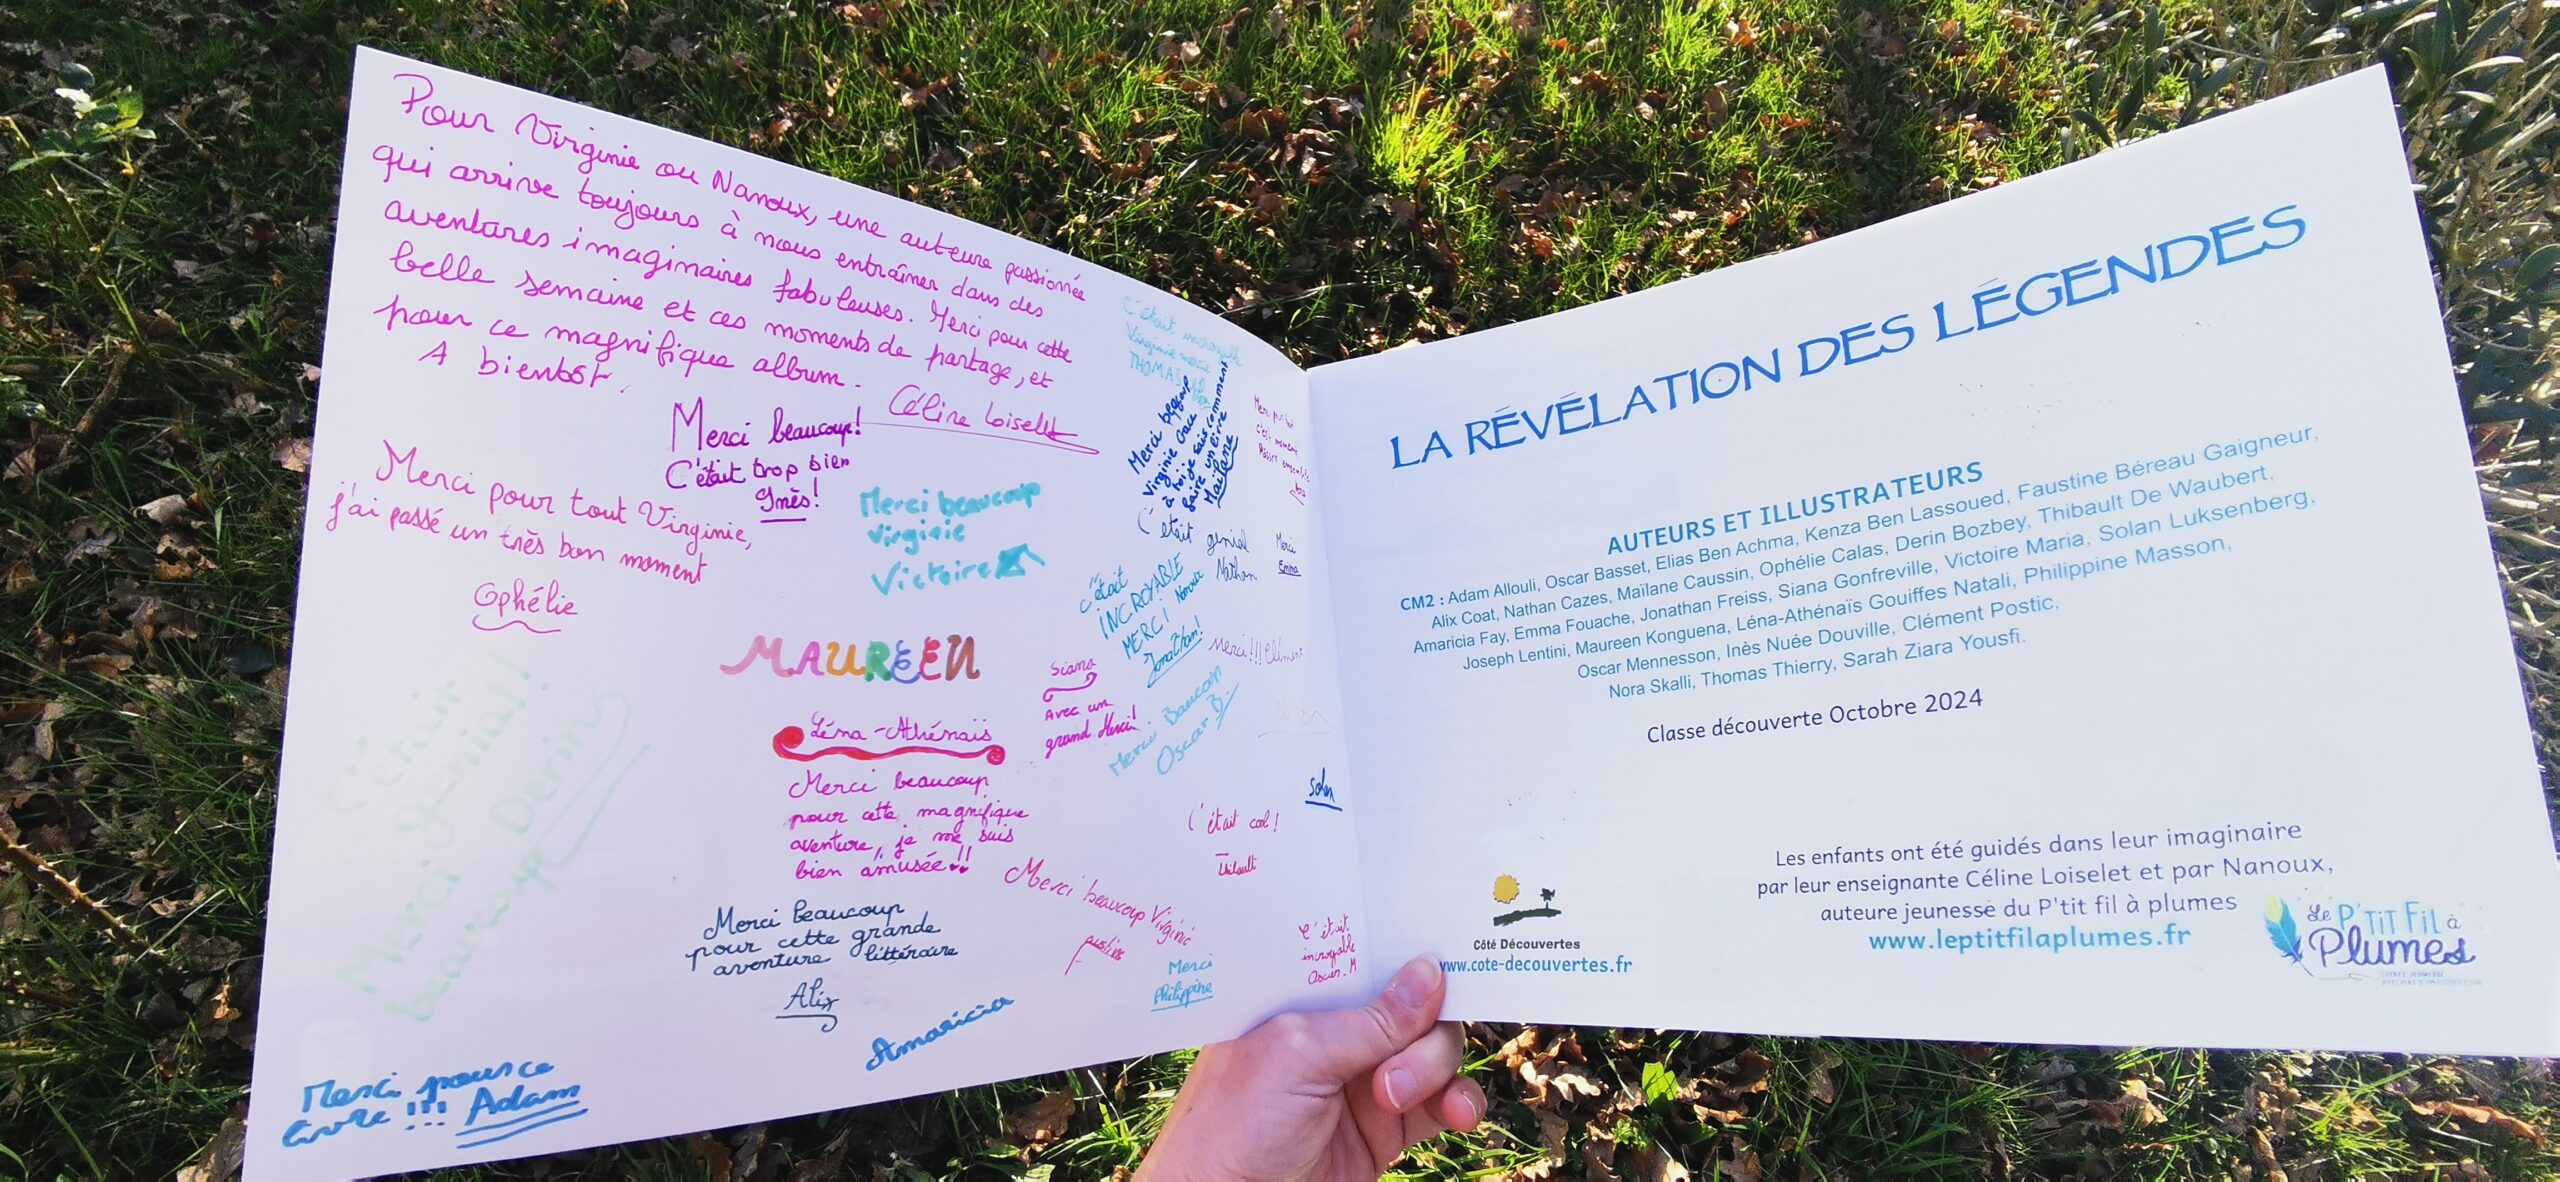 Pour Virginie ou Nanoux, une auteure passionnée
qui arrive toujours à nous entraîner dans des
aventures imaginaires fabuleuses. Merci pour cette
belle semaine et ces moments de partage, et
pour ce magnifique album.
A bientôt.
Céline Loiselet
Merci beaucoup!
C'était trop bien
Inès!
Merci pour tout Virginie,
j'ai passé un très bon moment
Ophélie
Merci beaucoup
Virginie
Victoire
C'était
génial!
Merci
beaucoup Derin
MAUREEN
Léna-Athénaïs
Merci beaucoup
pour cette magnifique
aventure, je me suis
bien amusée!!
Merci beaucoup
pour cette grande
aventure littéraire
Alix
Amaricia
Merci pour ce
livre !!! Adam
C'était incroyable
Virginie merci
THOMAS
Merci beaucoup
Virginie Grace
à toi je sais comment
faire un livre
Maïlane
Merci pour tout
c'est moment
passer ensemble
C'était génial
Nathan
Merci
Emma
C'était
INCROYABLE
MERCI Nanoux
Jonathan!
Merci!!! Clément
Siana
Avec un
grand Merci!
Merci Beaucoup
Oscar B.
Solan
C'était cool!
Thibault
Merci beaucoup Virginie
Merci
Philippine
C'était
incroyable
Oscar.M
LA RÉVÉLATION DES LÉGENDES
AUTEURS ET ILLUSTRATEURS
CM2 : Adam Allouli, Oscar Basset, Elias Ben Achma, Kenza Ben Lassoued, Faustine Béreau Gaigneur,
Alix Coat, Nathan Cazes, Maïlane Caussin, Ophélie Calas, Derin Bozbey, Thibault De Waubert,
Amaricia Fay, Emma Fouache, Jonathan Freiss, Siana Gonfreville, Victoire Maria, Solan Luksenberg,
Joseph Lentini, Maureen Konguena, Léna-Athénaïs Gouiffes Natali, Philippine Masson,
Oscar Mennesson, Inès Nuée Douville, Clément Postic,
Nora Skalli, Thomas Thierry, Sarah Ziara Yousfi.
Classe découverte Octobre 2024
Les enfants ont été guidés dans leur imaginaire
par leur enseignante Céline Loiselet et par Nanoux,
auteure jeunesse du P'tit fil à plumes
www.leptitfilaplumes.fr
Côté Découvertes
www.cote-decouvertes.fr
Le P'TIT FIL à
Plumes
LIVRES JEUNESSE